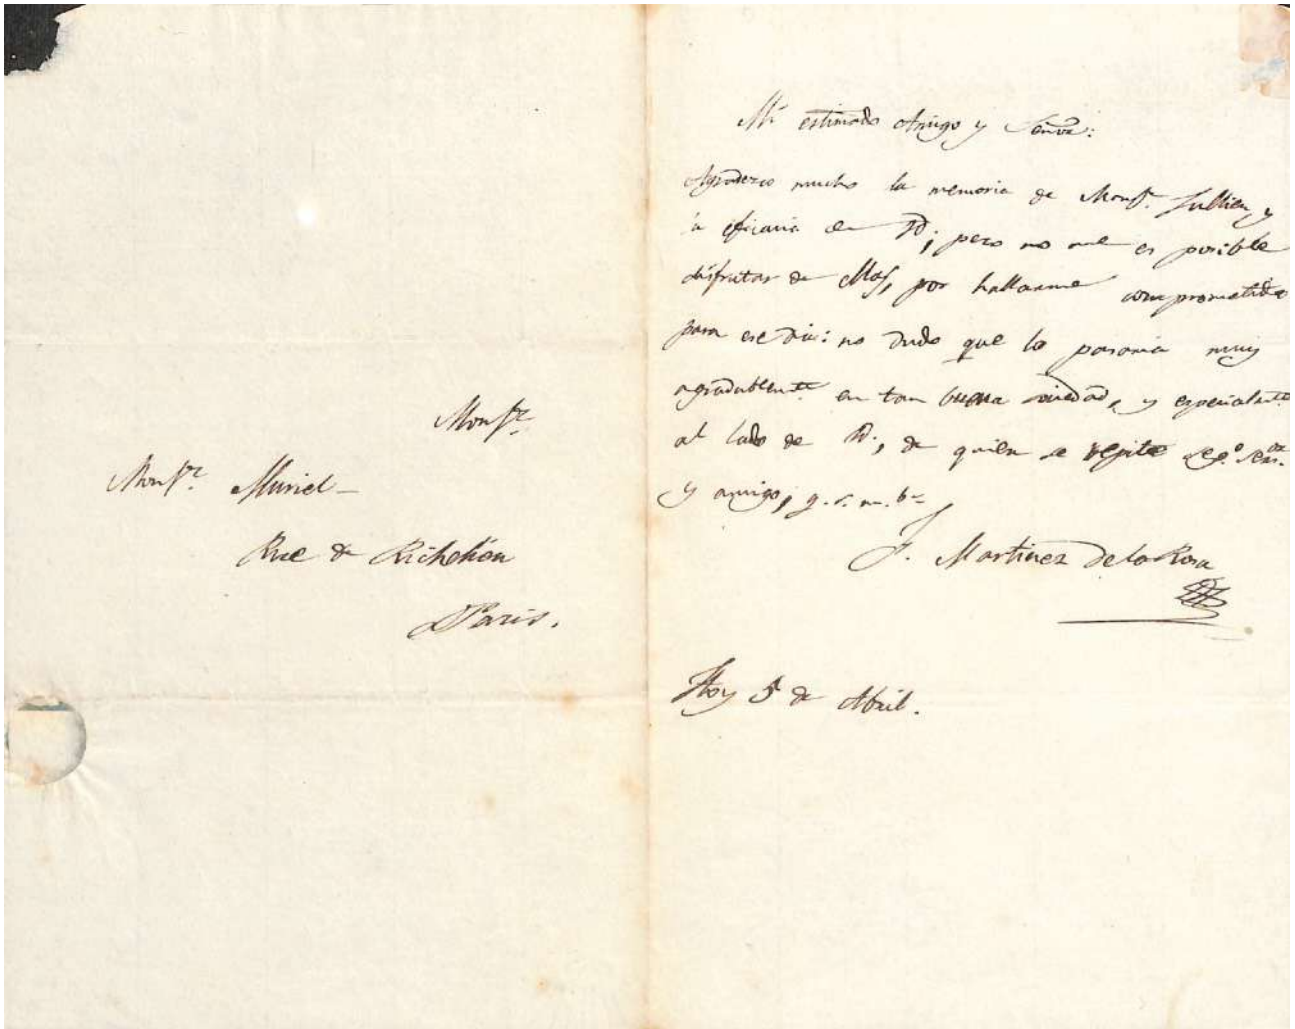 Monsr.
Monsr. Muriel_
Rue de Richelieu
à Paris.
Mi estimado Amigo y Señor:
Agradezco mucho la memoria de Monsr. Jullien, y
la eficacia de Vd; pero no me es posible
disfrutar de ellas, por hallarme comprometido
para ese dia: no dudo que lo pasaria muy
agradablemte. en tan buena sociedad, y especialmte.
al lado de Vd., de quien se repite
y amigo, q. s. m. b.
F. Martinez de la Rosa
Hoy 5 de Abril.